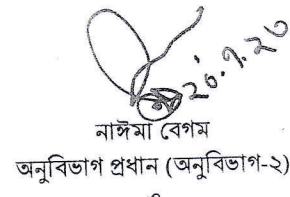 নাঈমা বেগম
অনুবিভাগ প্রধান (অনুবিভাগ-২)